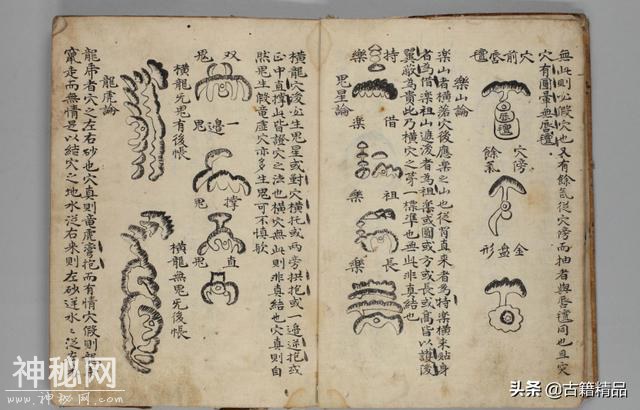 無此則必假穴也又有餘氣從穴旁而抽者與唇氈同也且穴
穴有團暈無唇氈
穴前唇氈
唇氈
穴旁餘氣
金盘形
樂山論
樂山者橫落穴後應樂之山也從背直來者為特樂橫來貼身
者為借樂祖山遮後者為祖樂或圓或方或長或高皆以護後
翼敵為貴此乃橫穴之第一標準也無此非真結也
持樂
借樂
祖樂
長樂
鬼星論
橫龍穴後必生鬼星或對穴橫托或两旁拱抱或一邉逓抱或
正中直撑山皆證穴之法也橫穴無此則非真結也穴真則自
然鬼生假竜虛穴亦多生鬼可不慎歟
双鬼
一邉鬼
撑鬼
直鬼
橫龍先鬼有後帳
橫龍無鬼旡後帳
龍虎論
龍虎者穴之左右砂也穴真則竜虎旁抱而有情穴假則
竄走而無情是以結穴之地水從右来則左砂逆水
神秘网
www.shenmiw.com
头条 @古籍精品